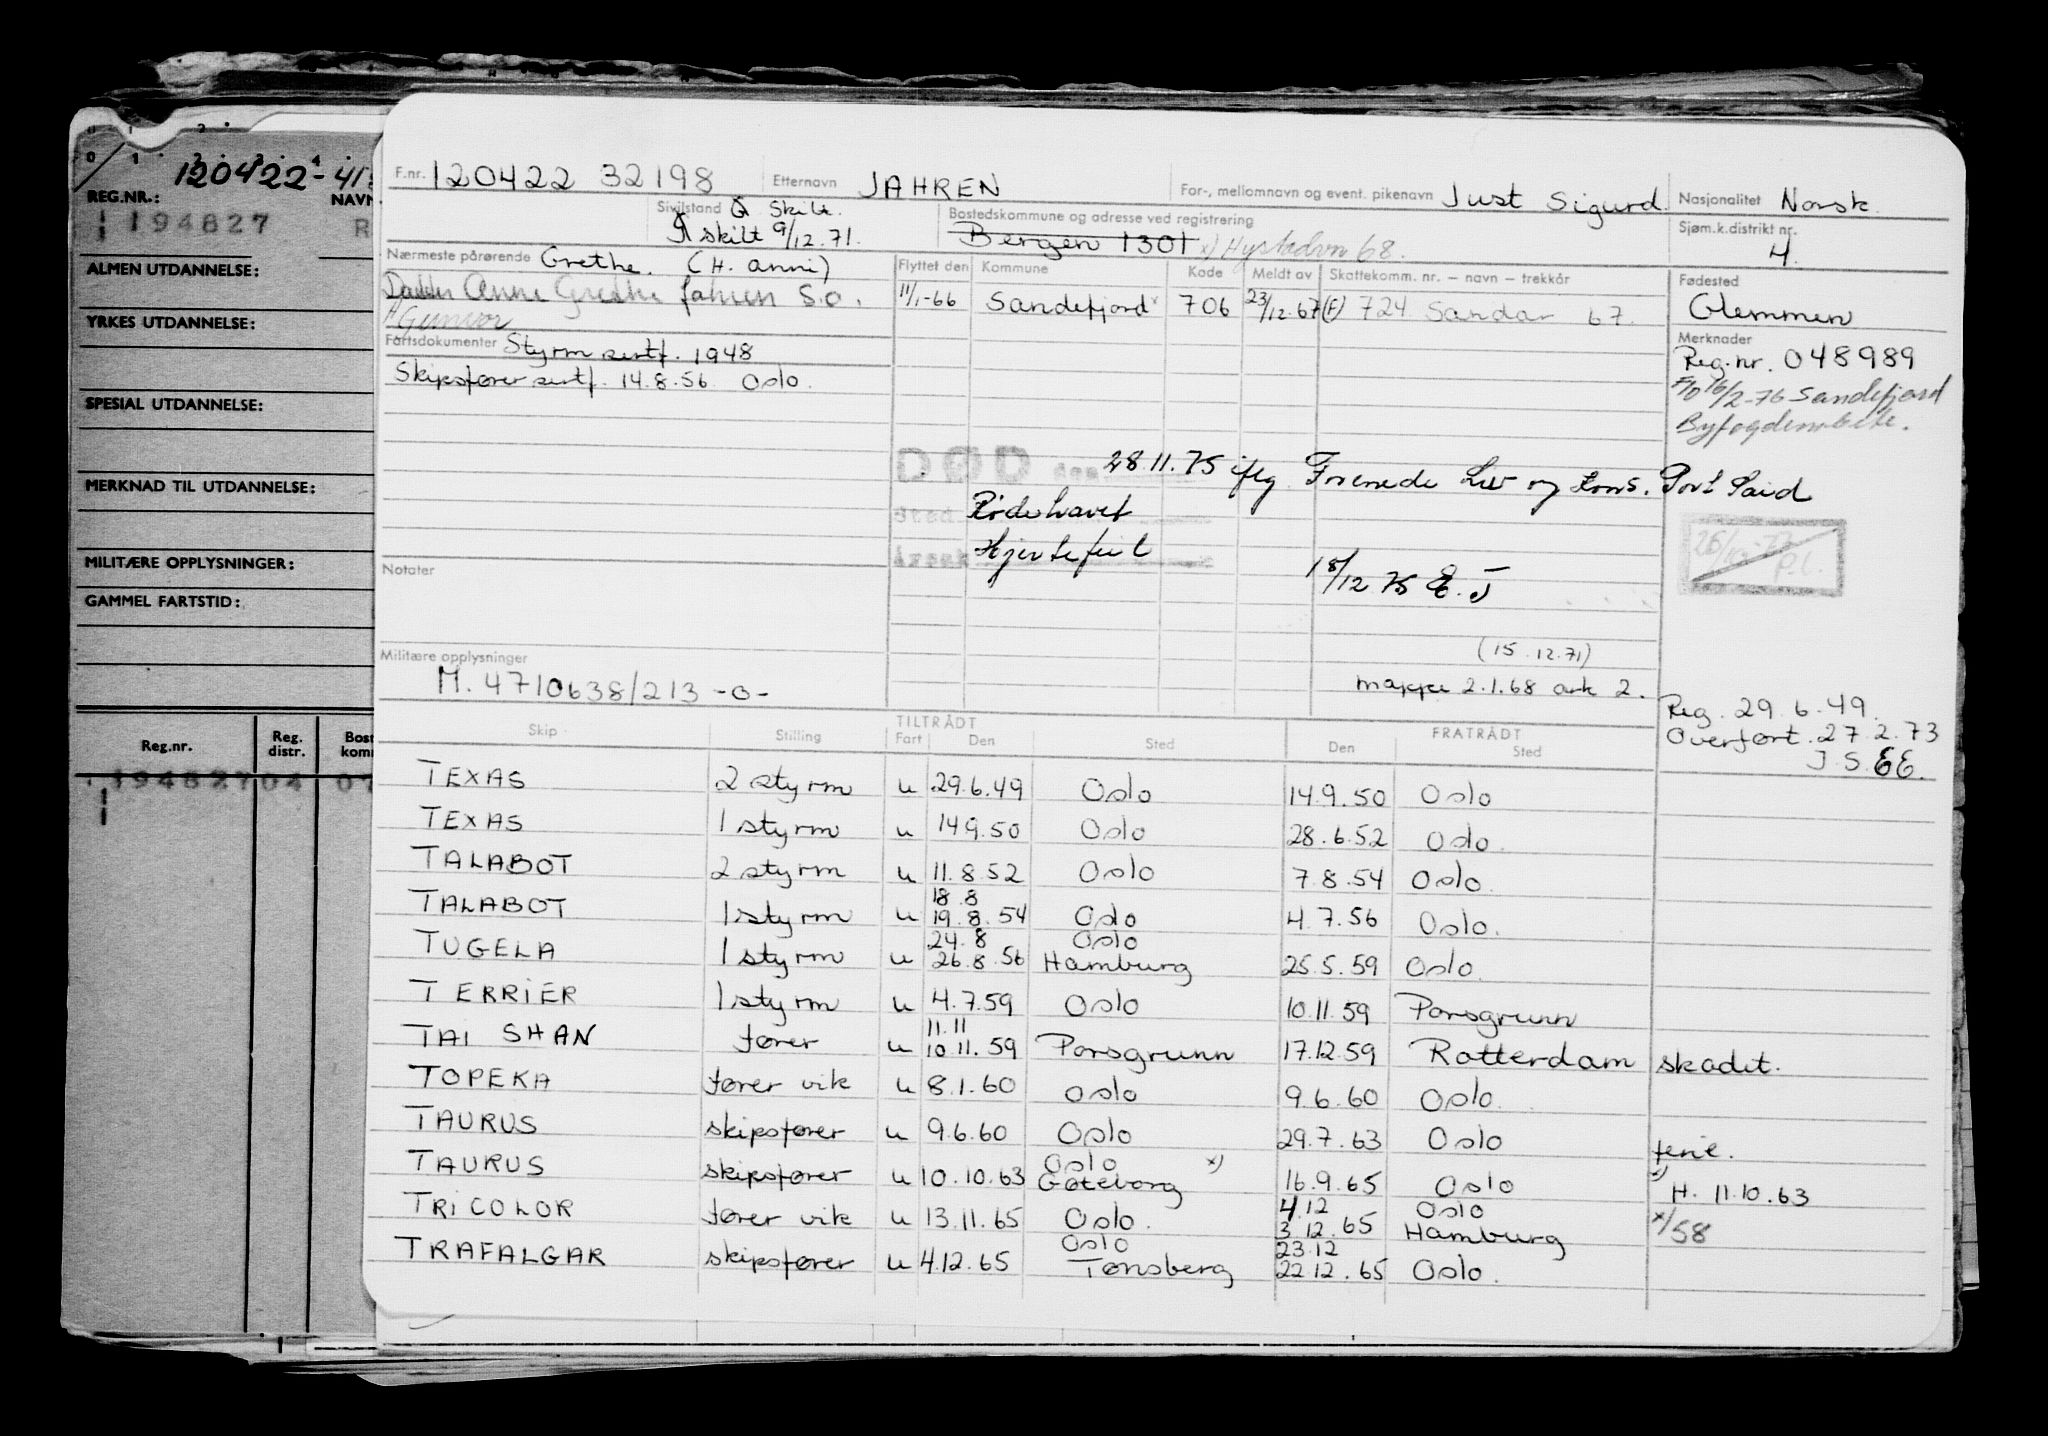 120422-41
REG.NR.: NAVN
194827 R
ALMEN UTDANNELSE:
YRKES UTDANNELSE:
SPESIAL UTDANNELSE:
MERKNAD TIL UTDANNELSE:
MILITÆRE OPPLYSNINGER:
GAMMEL FARTSTID:
Reg.nr. Reg. distr. Bost komm
194827 04 07
F.nr. 120422 32198 Etternavn JAHREN For-, mellomnavn og event. pikenavn Just Sigurd Nasjonalitet Norsk
Sivilstand Skilt. Bostedskommune og adresse ved registrering Sjøm.k.distrikt nr.
skilt 9/12.71. Bergen 1301 x) Hystadvn 68. 4.
Nærmeste pårørende Grethe. (H. Anni) Flyttet den Kommune Kode Meldt av Skattekomm. nr. – navn – trekkår Fødested
Datter Anne Grethe Jahren S.O. 11/1-66 Sandefjord x 706 23/12.67 (F) 724 Sandar 67. Glemmen
Gunvor
Fartsdokumenter Styrm sertf. 1948 Merknader
Reg.nr. 048989
Skipsfører sertf. 14.8.56 Oslo.
F/D 16/2-76 Sandefjord
Byfogdembete.
DØD den 28.11.75 iflg Forenede Liv og kons. Port Said
Sted Rødehavet
Årsak Hjertefeil
18/12.75 E.J
Notater
P.l.
(15.12.71)
Militære opplysninger
M. 4710638/213 -o- mappe 2.1.68 ark 2.
Reg. 29.6.49.
Overført. 27.2.73
J.S. EE.
TILTRÅDT FRATRÅDT
Skip Stilling Fart Den Sted Den Sted
TEXAS 2 styrm u 29.6.49 Oslo 14.9.50 Oslo
TEXAS 1 styrm u 14 9.50 Oslo 28.6.52 Oslo.
TALABOT 2 styrm u 11.8.52 Oslo 7.8.54 Oslo.
18.8
TALABOT 1 styrm u 19.8.54 Oslo 4.7.56 Oslo.
24.8 Oslo
TUGELA 1 styrm u 26.8.56 Hamburg 25.5.59 Oslo.
TERRIER 1 styrm u 4.7.59 Oslo 10.11.59 Porsgrunn
11.11
TAI SHAN fører u 10.11.59 Porsgrunn 17.12.59 Rotterdam skadet.
TOPEKA fører vik u 8.1.60 Oslo 9.6.60 Oslo.
TAURUS skipsfører u 9.6.60 Oslo 29.7.63 Oslo ferie.
Oslo x)
TAURUS skipsfører u 10.10.63 Gøteborg 16.9.65 Oslo x) H. 11.10.63
4.12 Oslo
TRICOLOR fører vik u 13.11.65 Oslo. 3.12.65 Hamburg x/58
Oslo 23.12
TRAFALGAR skipsfører u 4.12.65 Tønsberg 22.12.65 Oslo.